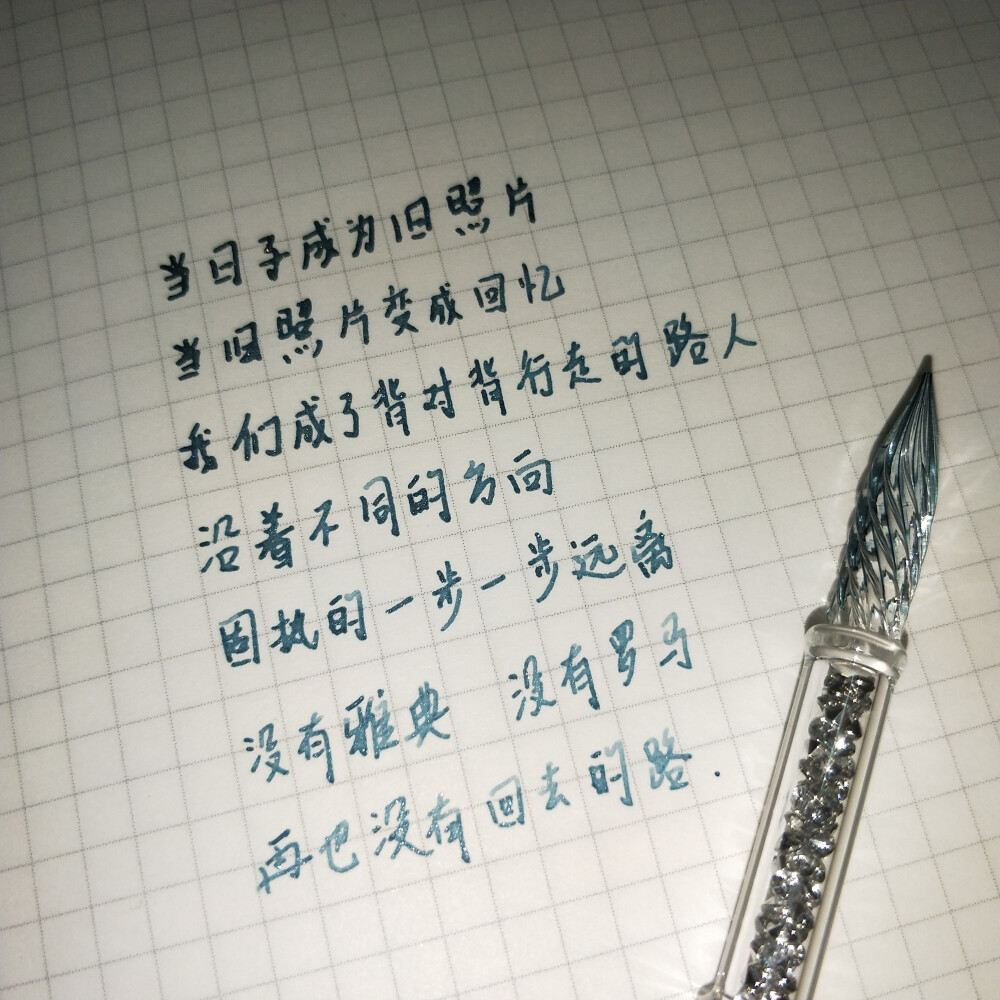 当日子成为旧照片
当旧照片变成回忆
我们成了背对背行走的路人
沿着不同的方向
固执的一步一步远离
没有雅典 没有罗马
再也没有回去的路.